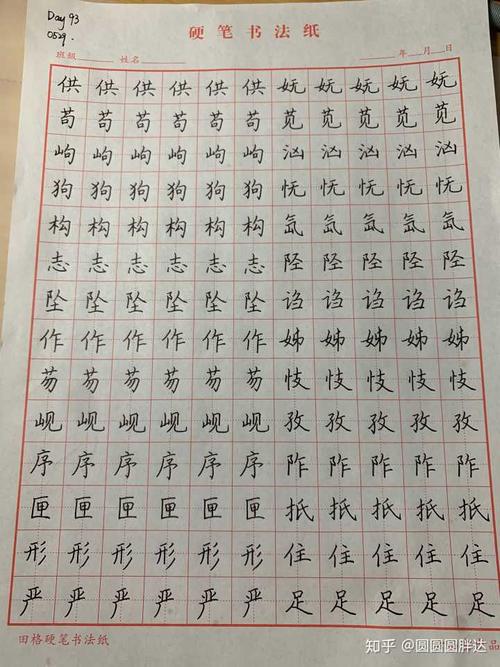 Day 93
0529.
硬笔书法纸
班级 姓名 年 月 日
供供供供供供妩妩妩妩妩
苟苟苟苟苟苟苋苋苋苋苋
岣岣岣岣岣岣汹汹汹汹汹
狗狗狗狗狗狗怃怃怃怃怃
构构构构构构氙氙氙氙氙
志志志志志志陉陉陉陉陉
坠坠坠坠坠坠诌诌诌诌诌
作作作作作作姊姊姊姊姊
芴芴芴芴芴芴忮忮忮忮忮
岘岘岘岘岘岘孜孜孜孜孜
序序序序序序阼阼阼阼阼
匣匣匣匣匣匣扺扺扺扺扺
形形形形形形住住住住住
严严严严严严足足足足足
田格硬笔书法纸
品
知乎 @圆圆圆胖达